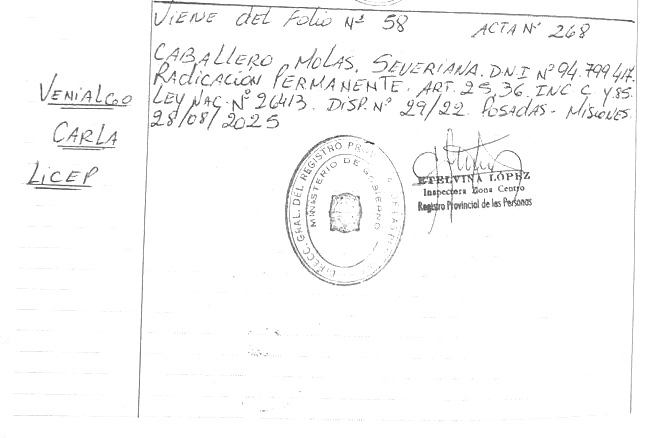 VIENE del Folio Nº 58
ACTA Nº 268
CABALLERO MOLAS, SEVERIANA. D.N.I Nº 94.799.417.
RADICACIÓN PERMANENTE. ART. 25, 36. INC C Y 85.
LEY NAC. Nº 26413. DISP. Nº 29/22. POSADAS - MISIONES.
28/08/2025
VENIALGO
CARLA
LICEP
DIRECC. GRAL. DEL REGISTRO
MINISTERIO DE GOBIERNO
ETELVINA LÓPEZ
Inspectora Zona Centro
Registro Provincial de las Personas